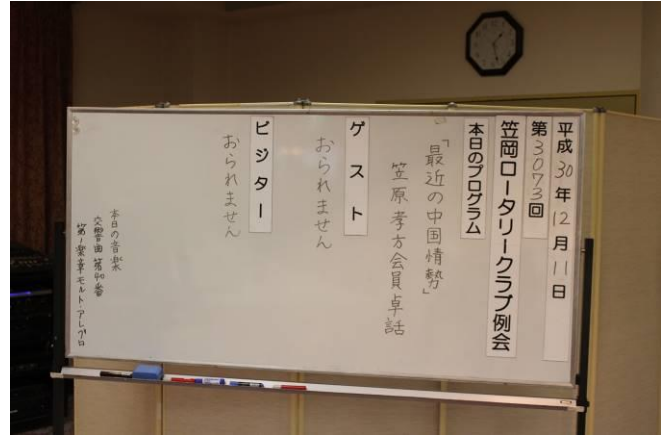 平成30年12月11日
第3073回
笠岡ロータリークラブ例会
本日のプログラム
「最近の中国情勢」
笠原孝方会員卓話
ゲスト
おられません
ビジター
おられません
本日の音楽
交響曲第40番
第1楽章モルト・アレグロ